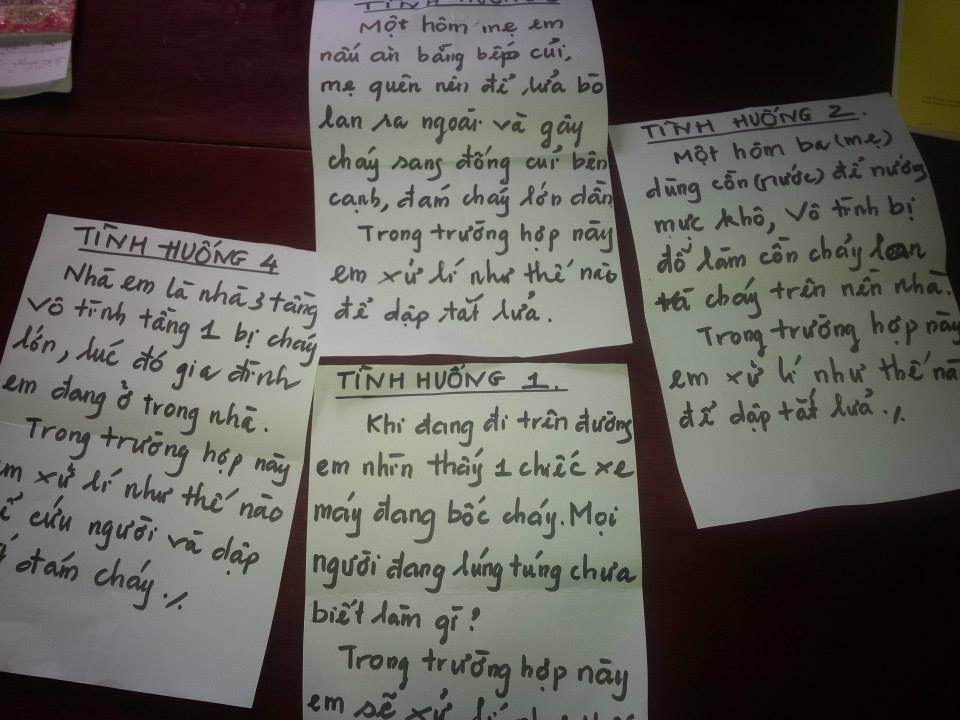 TÌNH HUỐNG 3
Một hôm mẹ em
nấu ăn bằng bếp củi,
mẹ quên nên để lửa bò
lan ra ngoài và gây
cháy sang đống củi bên
cạnh, đám cháy lớn dần
Trong trường hợp này
em xử lí như thế nào
để dập tắt lửa.
TÌNH HUỐNG 2.
Một hôm ba (mẹ)
dùng cồn (nước) để nướng
mực khô, vô tình bị
đổ làm cồn chảy lan
cháy trên nền nhà.
Trong trường hợp này
em xử lí như thế nà
để dập tắt lửa ./.
TÌNH HUỐNG 4
Nhà em là nhà 3 tầng
vô tình tầng 1 bị cháy
lớn, lúc đó gia đình
em đang ở trong nhà.
Trong trường hợp này
em xử lí như thế nào
ể cứu người và dập
đám cháy ./.
TÌNH HUỐNG 1.
Khi đang đi trên đường
em nhìn thấy 1 chiếc xe
máy đang bốc cháy. Mọi
người đang lúng túng chưa
biết làm gì?
Trong trường hợp này
em sẽ xử lí như thế